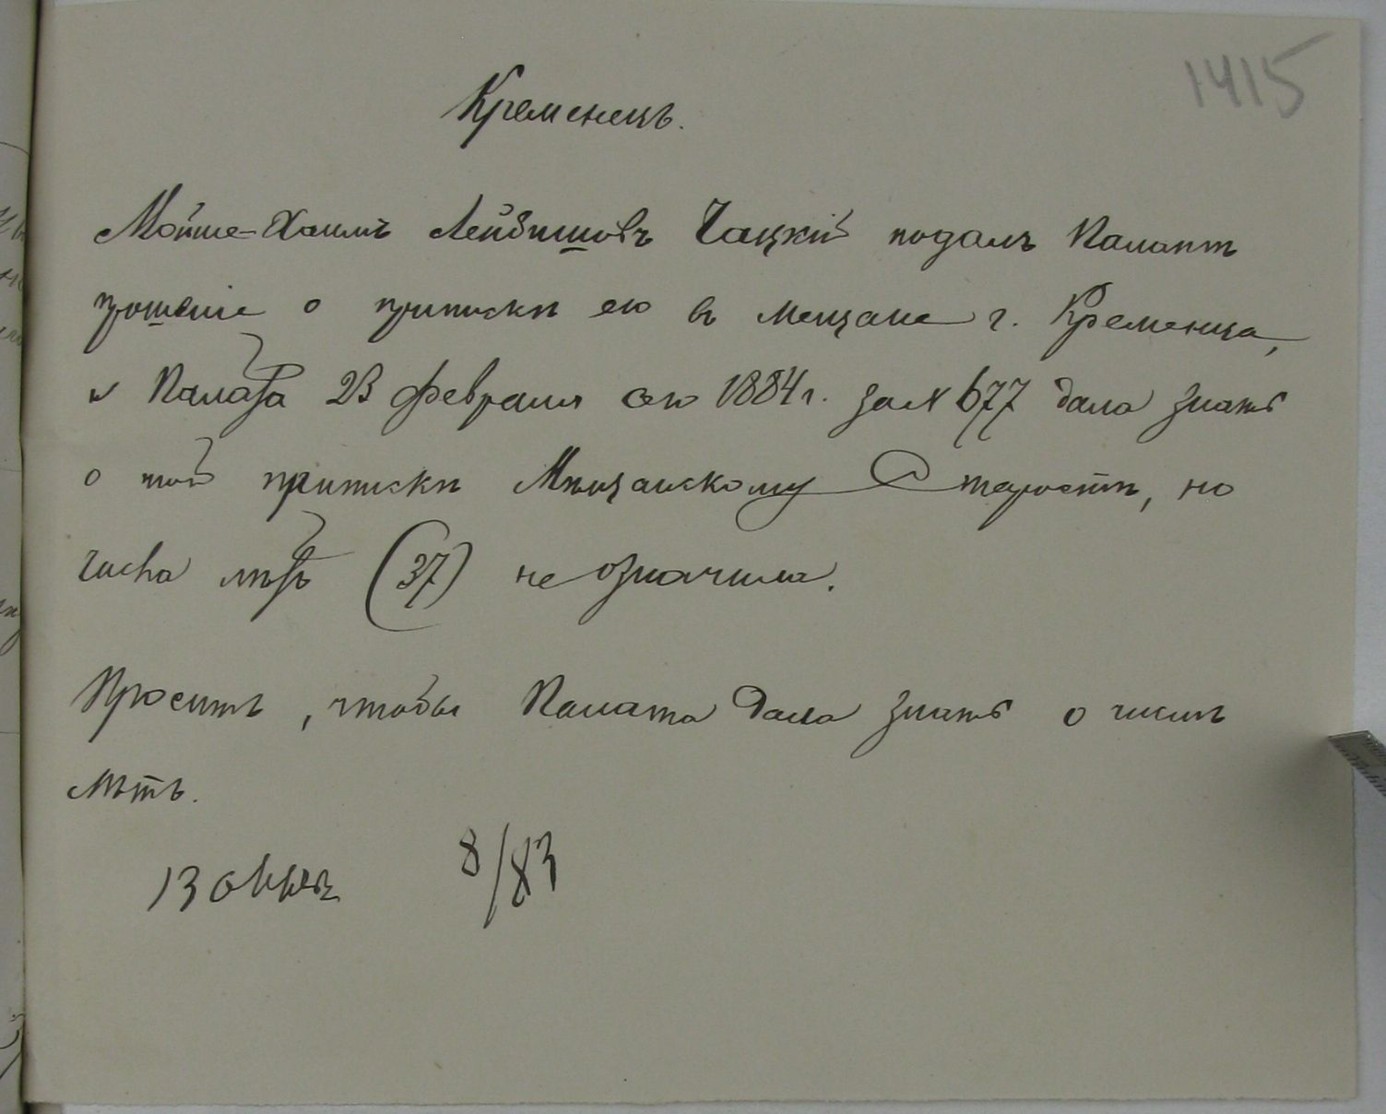 1415
Кременецъ.
Мойше-Хаимъ Лейбишовъ Чацкій подалъ Палатѣ
прошеніе о припискѣ его въ мещане г. Кременца,
и Палата 23 февраля сего 1884 г. за № 677 дала знать
о той припискѣ Мѣщанскому Старостѣ, но
числа лѣтъ (37) не означила.
Проситъ, чтобы Палата дала знать о числѣ
лѣтъ.
13 8/83